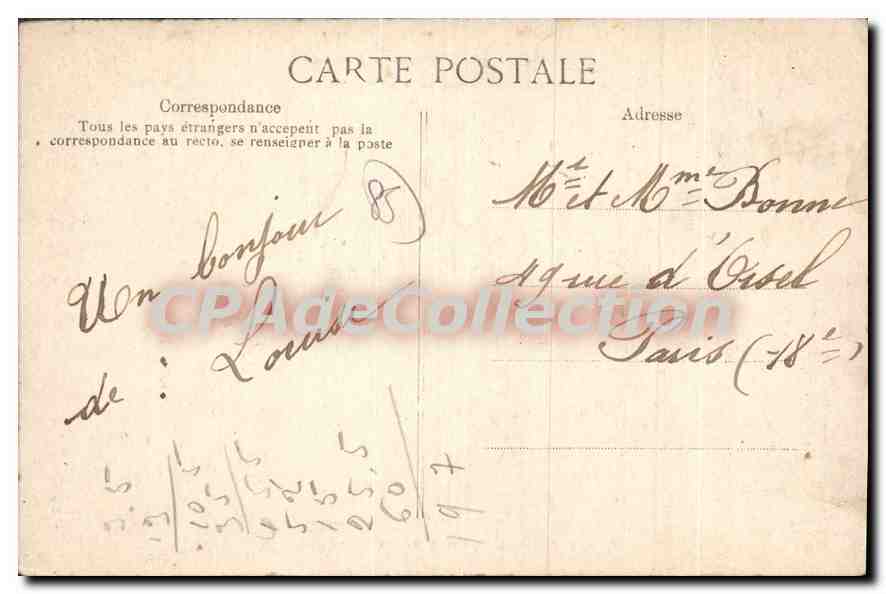 CARTE POSTALE
Correspondance
Tous les pays étrangers n'acceptent pas la
correspondance au recto, se renseigner à la poste
Adresse
85
Un bonjour
de : Louise
Mr et Mme Bonne
49 rue d'Orsel
Paris (18e)
CPAdeCollection.com
197